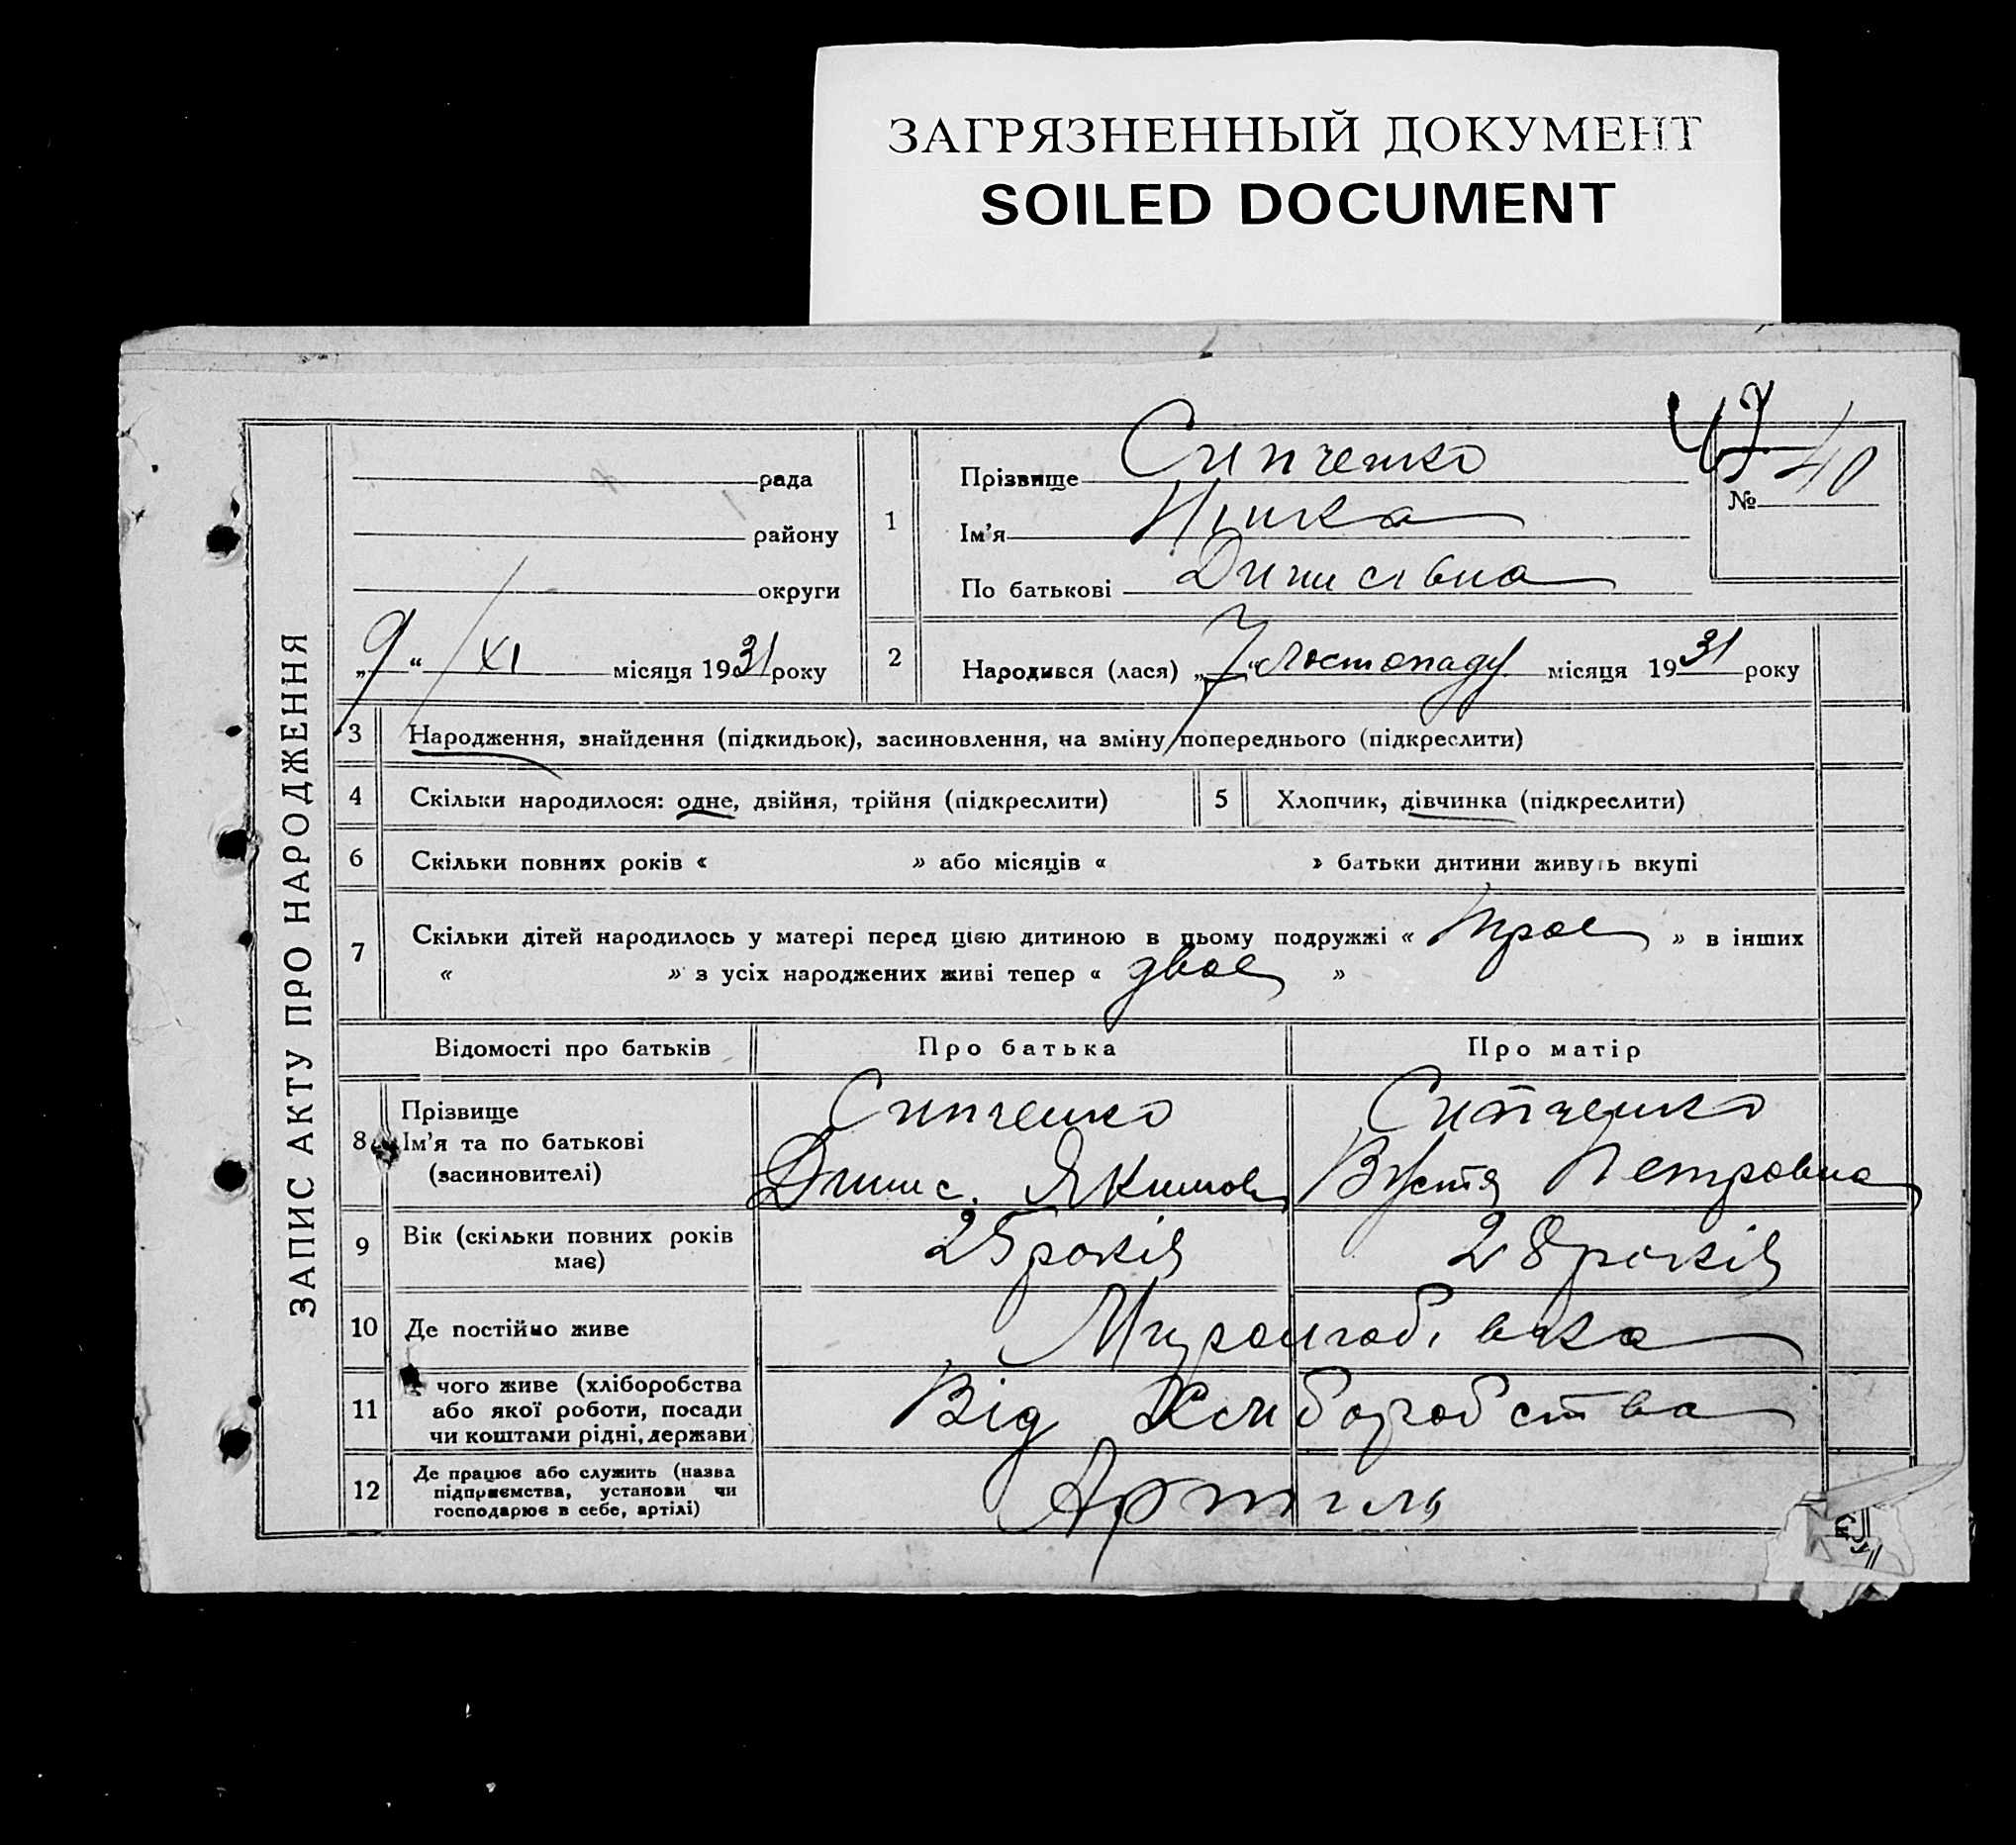 ЗАГРЯЗНЕННЫЙ ДОКУМЕНТ
SOILED DOCUMENT
ЗАПИС АКТУ ПРО НАРОДЖЕННЯ
рада
району
округи
„9“ XI місяця 1931 року
47
№ 40
1 Прізвище Сипченко
Ім'я Нинка
По батькові Динисівна
2 Народився (лася) „7“ листопаду місяця 1931 року
3 Народження, знайдення (підкидьок), засиновлення, на зміну попереднього (підкреслити)
4 Скільки народилося: одне, двійня, трійня (підкреслити)
5 Хлопчик, дівчинка (підкреслити)
6 Скільки повних років « » або місяців « » батьки дитини живуть вкупі
7 Скільки дітей народилось у матері перед цією дитиною в цьому подружжі « троє » в інших
« » з усіх народжених живі тепер « двоє »
Відомості про батьків Про батька Про матір
8 Прізвище
Ім'я та по батькові
(засиновителі)
Сипченко
Динис Якимов
Сипченко
Вустя Петровна
9 Вік (скільки повних років
має)
25 років
28 років
10 Де постійно живе
11 чого живе (хліборобства
або якої роботи, посади
чи коштами рідні, держави)
Від Хлиборобства
12 Де працює або служить (назва
підприємства, установи чи
господарює в себе, артілі)
Артиль